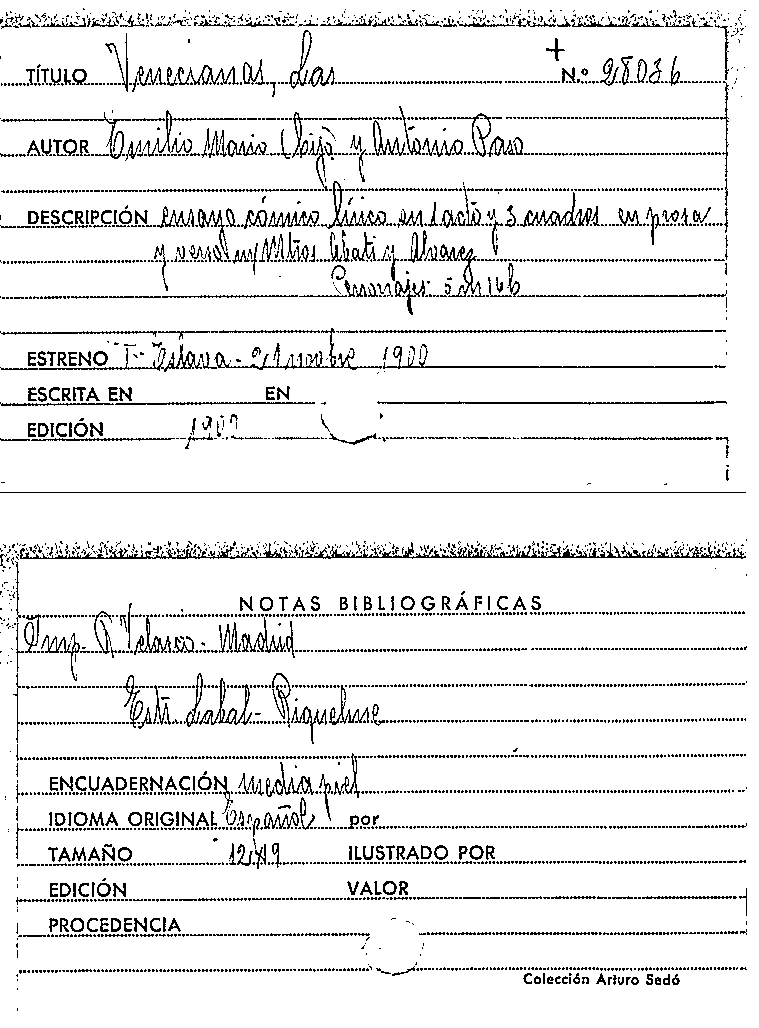 TÍTULO Venecianas, Las + N.º 28036
AUTOR Emilio Mario (hijo) y Antonio Paso
DESCRIPCIÓN ensayo cómico lírico en 1 acto y 3 cuadros en prosa
y verso m/ Mtros Abati y Alvarez
Personajes: 5 m 16 h
ESTRENO T- Eslava - 21 novbre 1900
ESCRITA EN EN
EDICIÓN
NOTAS BIBLIOGRÁFICAS
Imp. R Velasco - Madrid
Estr. Labal - Riquelme
ENCUADERNACIÓN media piel
IDIOMA ORIGINAL Español por
TAMAÑO 12x19 ILUSTRADO POR
EDICIÓN VALOR
PROCEDENCIA
Colección Arturo Sedó